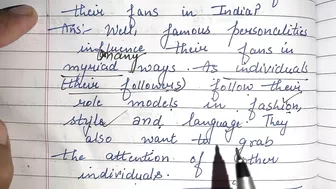 their fans in India?
Ans:- Well, famous personelities
influence their fans in
many
myriad ways. As individuals
(their followers) follow their
role models in fashion,
style and language. They
also want to grab
the attention of other
individuals.